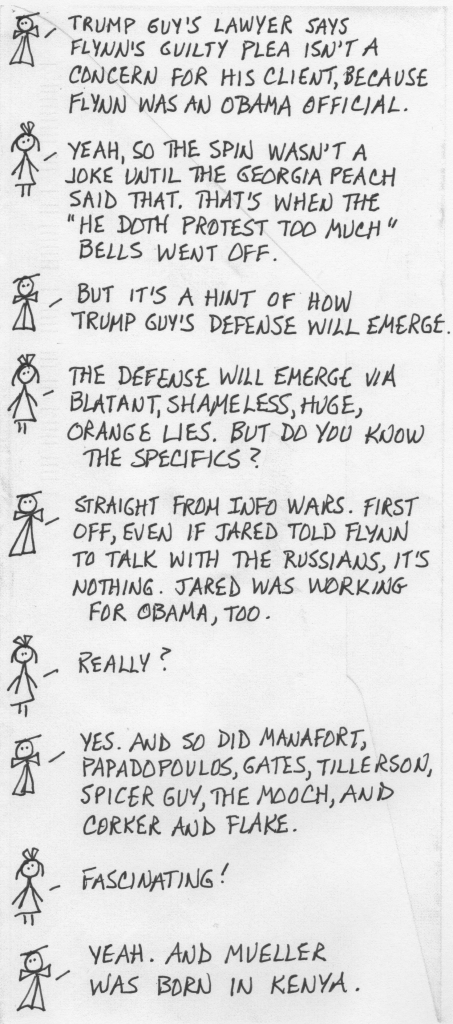 TRUMP GUY'S LAWYER SAYS
FLYNN'S GUILTY PLEA ISN'T A
CONCERN FOR HIS CLIENT, BECAUSE
FLYNN WAS AN OBAMA OFFICIAL.
YEAH, SO THE SPIN WASN'T A
JOKE UNTIL THE GEORGIA PEACH
SAID THAT. THAT'S WHEN THE
"HE DOTH PROTEST TOO MUCH"
BELLS WENT OFF.
BUT IT'S A HINT OF HOW
TRUMP GUY'S DEFENSE WILL EMERGE.
THE DEFENSE WILL EMERGE VIA
BLATANT, SHAMELESS, HUGE,
ORANGE LIES. BUT DO YOU KNOW
THE SPECIFICS?
STRAIGHT FROM INFO WARS. FIRST
OFF, EVEN IF JARED TOLD FLYNN
TO TALK WITH THE RUSSIANS, IT'S
NOTHING. JARED WAS WORKING
FOR OBAMA, TOO.
REALLY?
YES. AND SO DID MANAFORT,
PAPADOPOULOS, GATES, TILLERSON,
SPICER GUY, THE MOOCH, AND
CORKER AND FLAKE.
FASCINATING!
YEAH. AND MUELLER
WAS BORN IN KENYA.